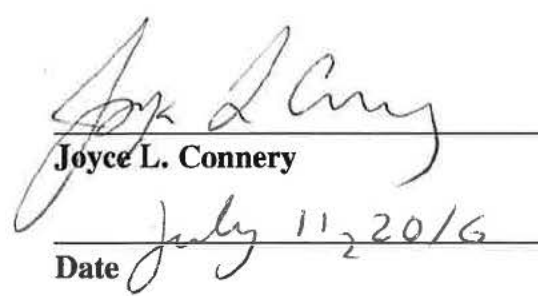 Joyce L Connery
Joyce L. Connery
July 11, 2016
Date